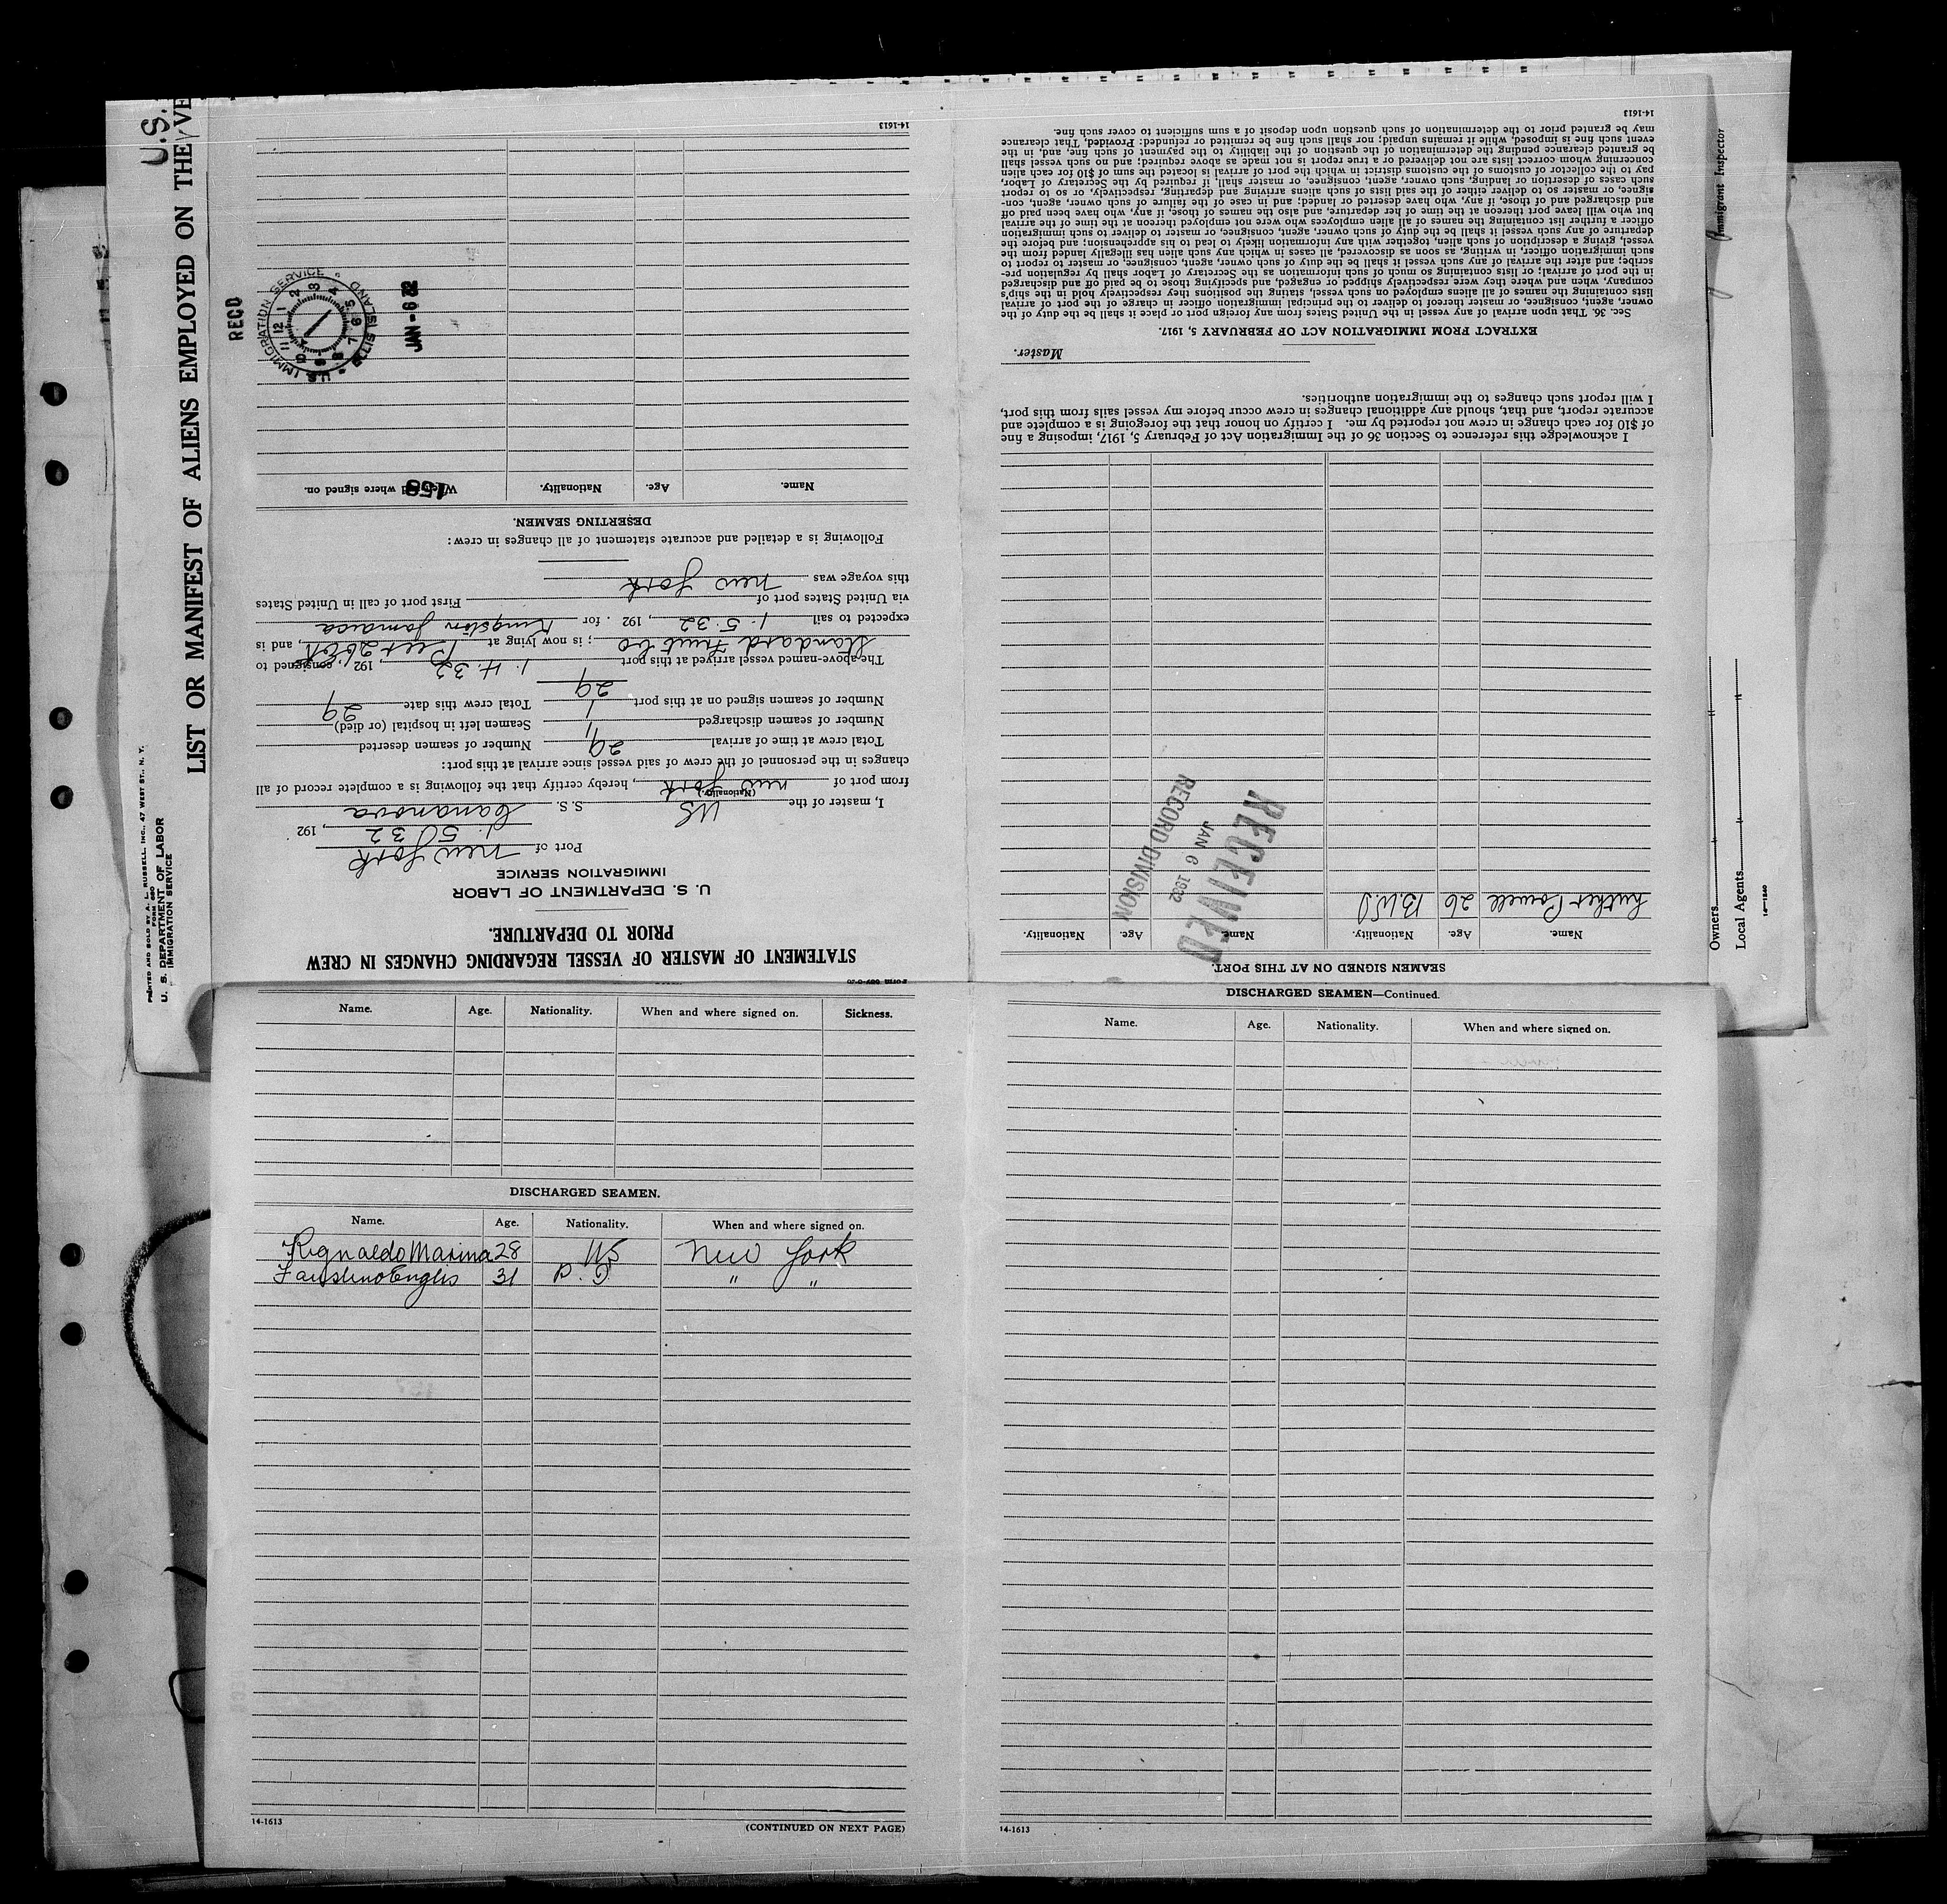 U.S.
LIST OR MANIFEST OF ALIENS EMPLOYED ON THE VE
PRINTED AND SOLD BY A. L. RUSSELL, INC., 47 WEST ST., N. Y.
U. S. DEPARTMENT OF LABOR
IMMIGRATION SERVICE
STATEMENT OF MASTER OF VESSEL REGARDING CHANGES IN CREW
PRIOR TO DEPARTURE.
U. S. DEPARTMENT OF LABOR
IMMIGRATION SERVICE
Port of New York
1. 5. 32, 192
I, master of the US S. S. Cananova
(Nationality)
from port of New York, hereby certify that the following is a complete record of all
changes in the personnel of the crew of said vessel since arrival at this port:
Total crew at time of arrival 29 Number of seamen deserted
Number of seamen discharged Seamen left in hospital (or died)
Number of seamen signed on at this port 1 Total crew this date 29
29
The above-named vessel arrived at this port 1. 4. 32, 192 , consigned to
Standard Fruit Co; is now lying at , and is
expected to sail 1. 5. 32, 192 . for Kingston Jamaica
via United States port of First port of call in United States
this voyage was New York
Following is a detailed and accurate statement of all changes in crew:
DESERTING SEAMEN.
Name. Age. Nationality. When and where signed on.
158
RECD
U.S. IMMIGRATION SERVICE ELLIS ISLAND
12 1 2 3 4 5 6 7 8 9 10 11
JAN -6 32
14-1613
SEAMEN SIGNED ON AT THIS PORT.
Name. Age. Nationality. Name. Age. Nationality.
Luther Powell 26 B.W.I
RECEIVED
JAN 6 1932
RECORD DIVISION
I acknowledge this reference to Section 36 of the Immigration Act of February 5, 1917, imposing a fine
of $10 for each change in crew not reported by me. I certify on honor that the foregoing is a complete and
accurate report, and that, should any additional changes in crew occur before my vessel sails from this port,
I will report such changes to the immigration authorities.
Master.
EXTRACT FROM IMMIGRATION ACT OF FEBRUARY 5, 1917.
Sec. 36. That upon arrival of any vessel in the United States from any foreign port or place it shall be the duty of the
owner, agent, consignee, or master thereof to deliver to the principal immigration officer in charge of the port of arrival
lists containing the names of all aliens employed on such vessel, stating the positions they respectively hold in the ship's
company, when and where they were respectively shipped or engaged, and specifying those to be paid off and discharged
in the port of arrival; or lists containing so much of such information as the Secretary of Labor shall by regulation pre-
scribe; and after the arrival of any such vessel it shall be the duty of such owner, agent, consignee, or master to report to
such immigration officer, in writing, as soon as discovered, all cases in which any such alien has illegally landed from the
vessel, giving a description of such alien, together with any information likely to lead to his apprehension; and before the
departure of any such vessel it shall be the duty of such owner, agent, consignee, or master to deliver to such immigration
officer a further list containing the names of all alien employees who were not employed thereon at the time of the arrival
but who will leave port thereon at the time of her departure, and also the names of those, if any, who have been paid off
and discharged and of those, if any, who have deserted or landed; and in case of the failure of such owner, agent, con-
signee, or master so to deliver either of the said lists of such aliens arriving and departing, respectively, or so to report
such cases of desertion or landing, such owner, agent, consignee, or master shall, if required by the Secretary of Labor,
pay to the collector of customs of the customs district in which the port of arrival is located the sum of $10 for each alien
concerning whom correct lists are not delivered or a true report is not made as above required; and no such vessel shall
be granted clearance pending the determination of the question of the liability to the payment of such fine, and, in the
event such fine is imposed, while it remains unpaid; nor shall such fine be remitted or refunded: Provided, That clearance
may be granted prior to the determination of such question upon deposit of a sum sufficient to cover such fine.
14-1613
Immigrant Inspector
Owners
Local Agents
Name. Age. Nationality. When and where signed on. Sickness.
DISCHARGED SEAMEN.
Name. Age. Nationality. When and where signed on.
Regnaldo Marina 28 US New York
Faustino Englis 31 P.I " "
14-1613
(CONTINUED ON NEXT PAGE)
DISCHARGED SEAMEN—Continued.
Name. Age. Nationality. When and where signed on.
14-1613